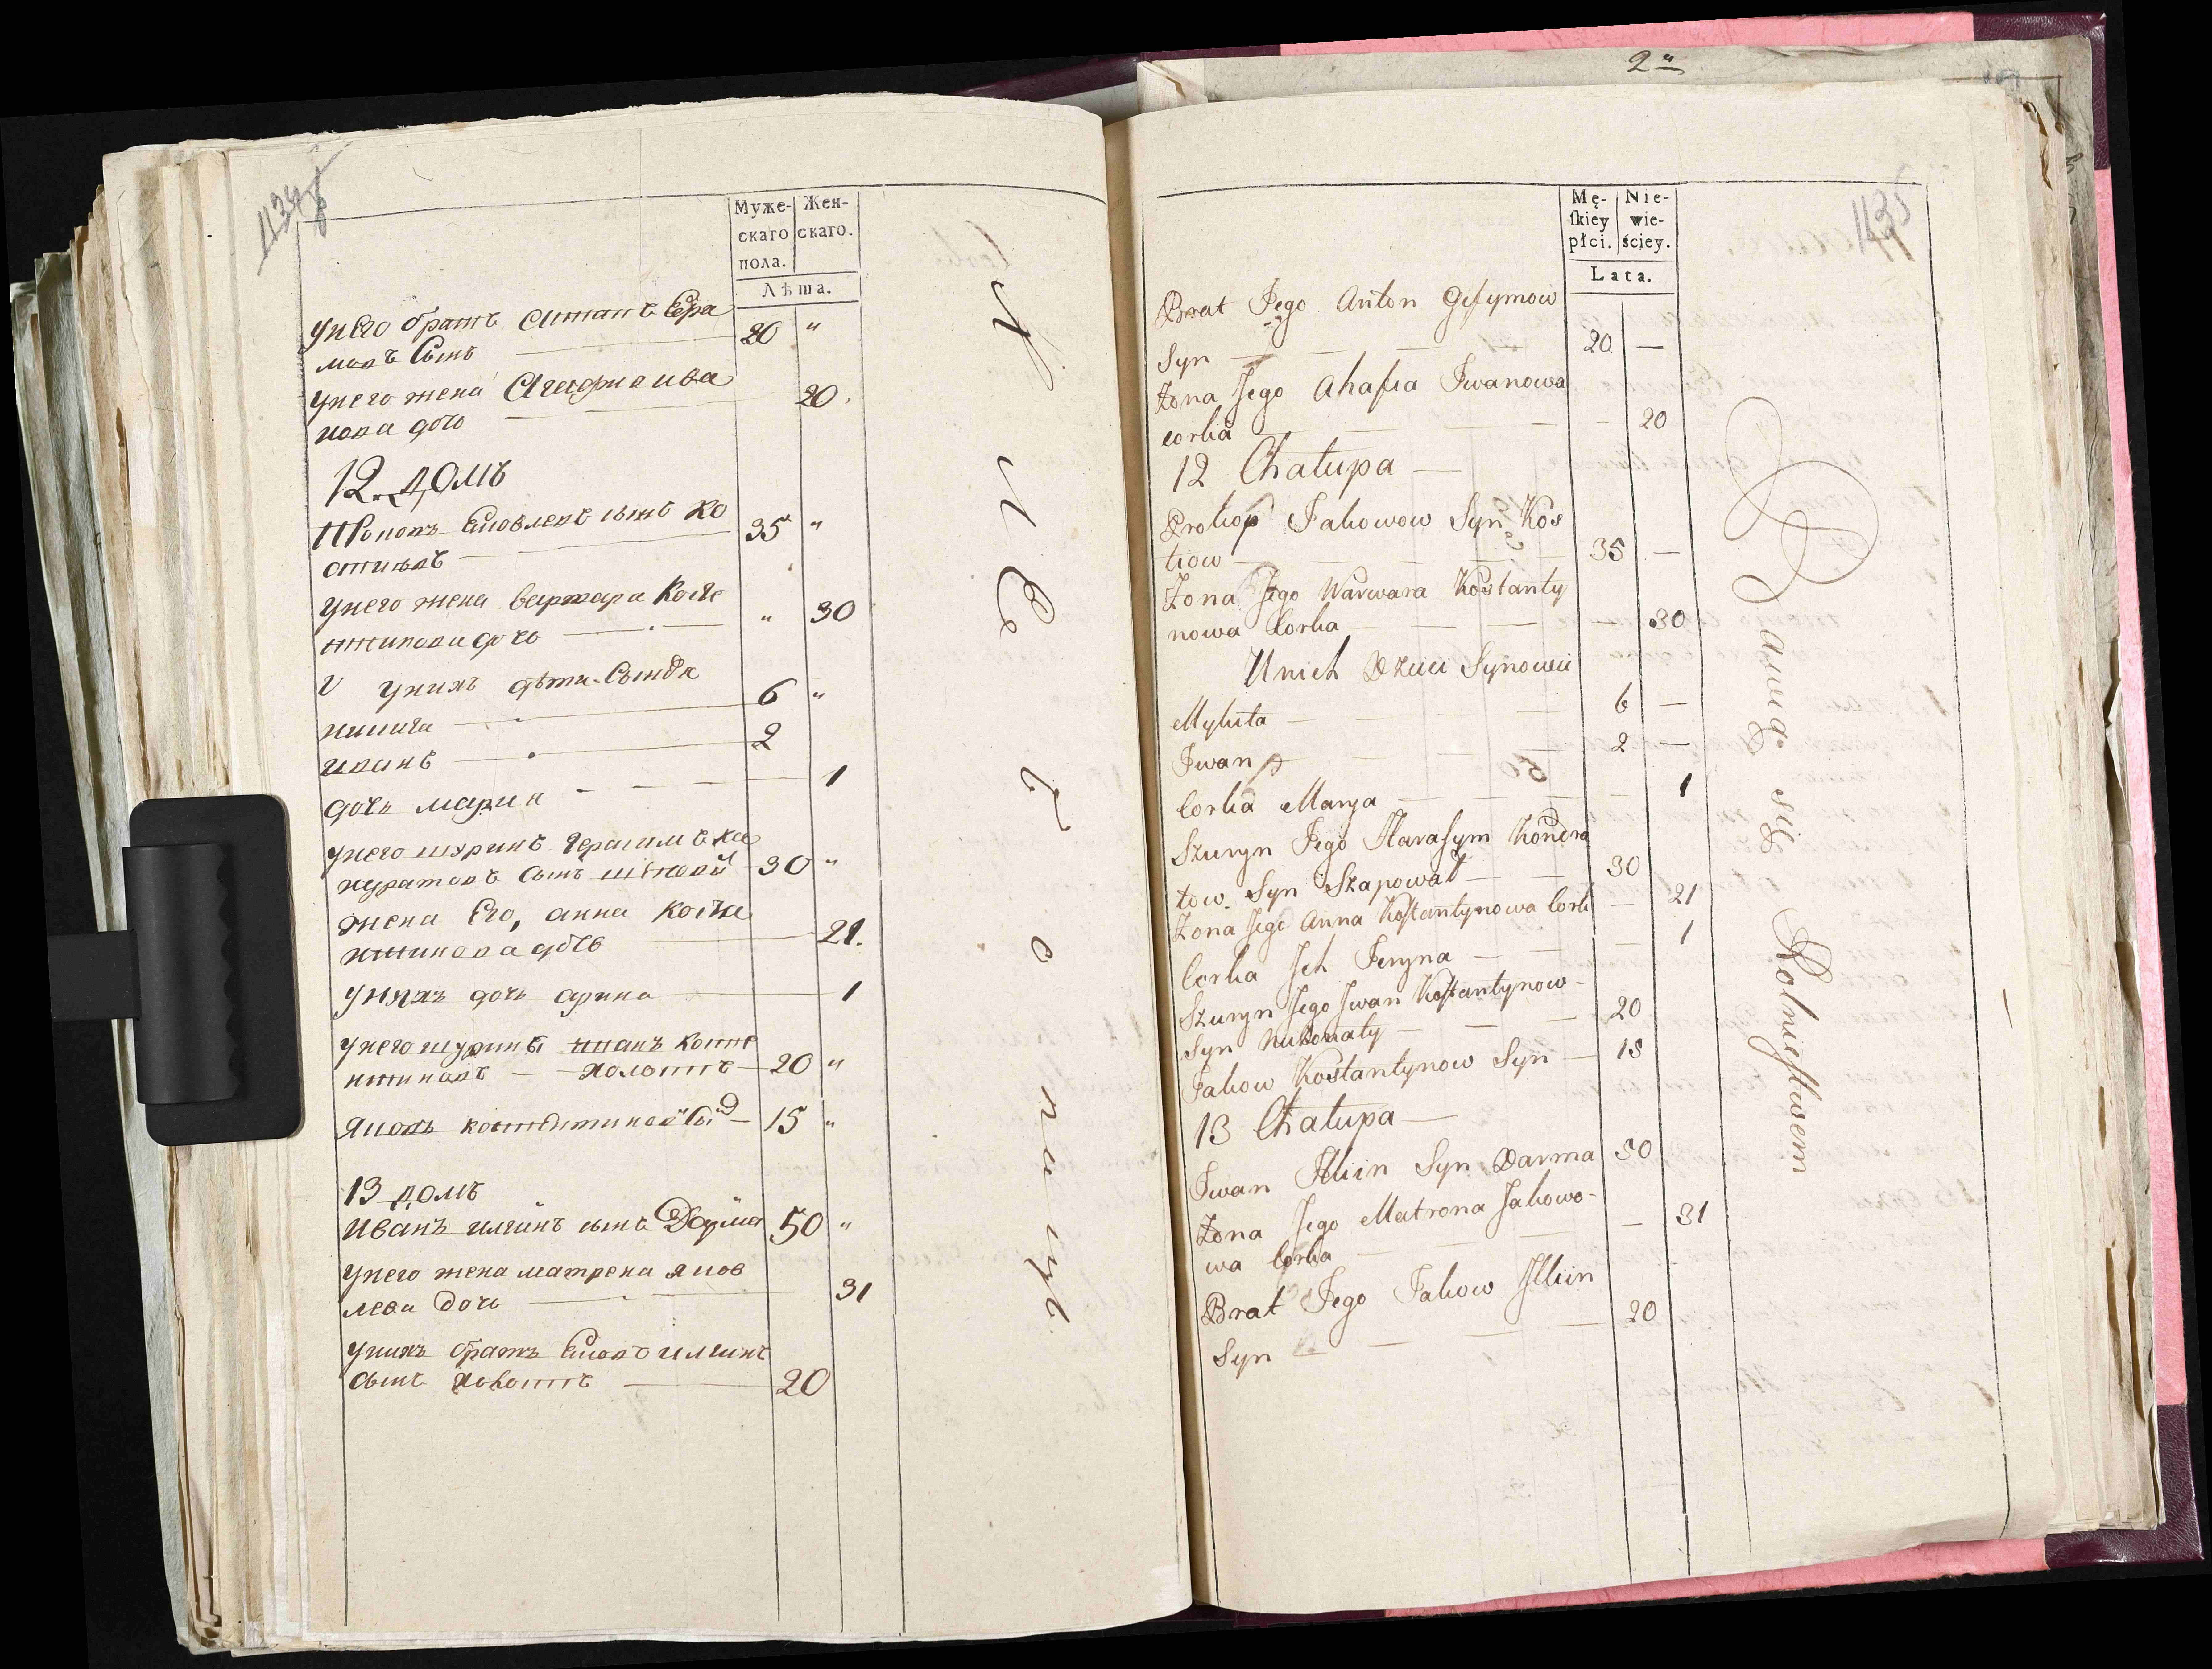 1134
Муже-
скаго
пола.
Жен-
скаго.
Лѣта.
у нЕго братъ Антанъ Ера
мовъ Сынъ 20 "
у него жена Агафия ива
нова дочь 20
12 домъ
Проковъ Яковлевъ сынъ Ко
стиовъ 35 "
у него жена варвара Косте
нтинова дочь " 30
у нихъ дѣти Сыновя
никита 6 "
иванъ 2
дочь мария 1
у него шуринъ герасимъ Ко
ндратовъ сынъ 30 "
жена Его, анна Косте
нтинова дочь 21.
у нихъ дочь арина 1
у него шуринъ иванъ Косте
нтиновъ холостъ 20 "
яковъ 15 "
13 домъ
Иванъ илиинъ сынъ Дарма 50 "
у него жена матрена яков
лева дочь 31
у нихъ братъ Яковъ илиинъ
сынъ холостъ 20
2"
1135
Mę-
ſkiey
płci.
Nie-
wie-
ściey.
Lata.
Brat Jego Anton
Syn 20 —
Żona Jego Ahafia Iwanowa
corka — 20
12 Chałupa —
Prokop Jakowow Syn Kos
tiow 35 —
Żona Jego Warwara Kostanty
nowa Corka — 30
Unich Dzieci Synowie
Mykita 6 —
Iwan 2 —
Corka Marya — 1
Szuryn Jego Harasym Kondra
tow Syn Szapował 30
Żona Jego Anna Kostantynowa Cork — 21
Corka Ich Jeryna — 1
Szuryn Jego Iwan Kostantynow-
Syn 20
Jakow Kostantynow Syn — 15
13 Chałupa —
Iwan Illiin Syn Darma 50
Żona Jego Matrona Jakowo-
wa Corka — 31
Brat Jego Jakow Illiin
Syn 20
Bawią się Rolnictwem